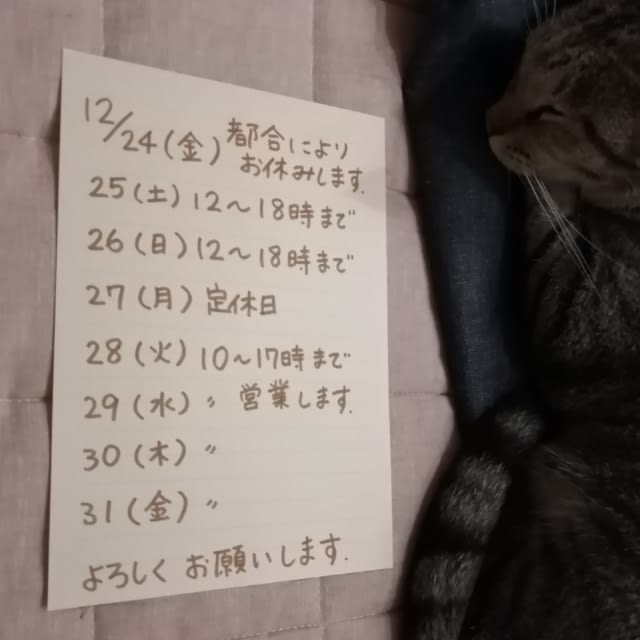 12/24(金) 都合により
お休みします.
25(土) 12〜18時まで
26(日) 12〜18時まで
27(月) 定休日
28(火) 10〜17時まで
29(水) 〃 営業します.
30(木) 〃
31(金) 〃
よろしく お願いします.